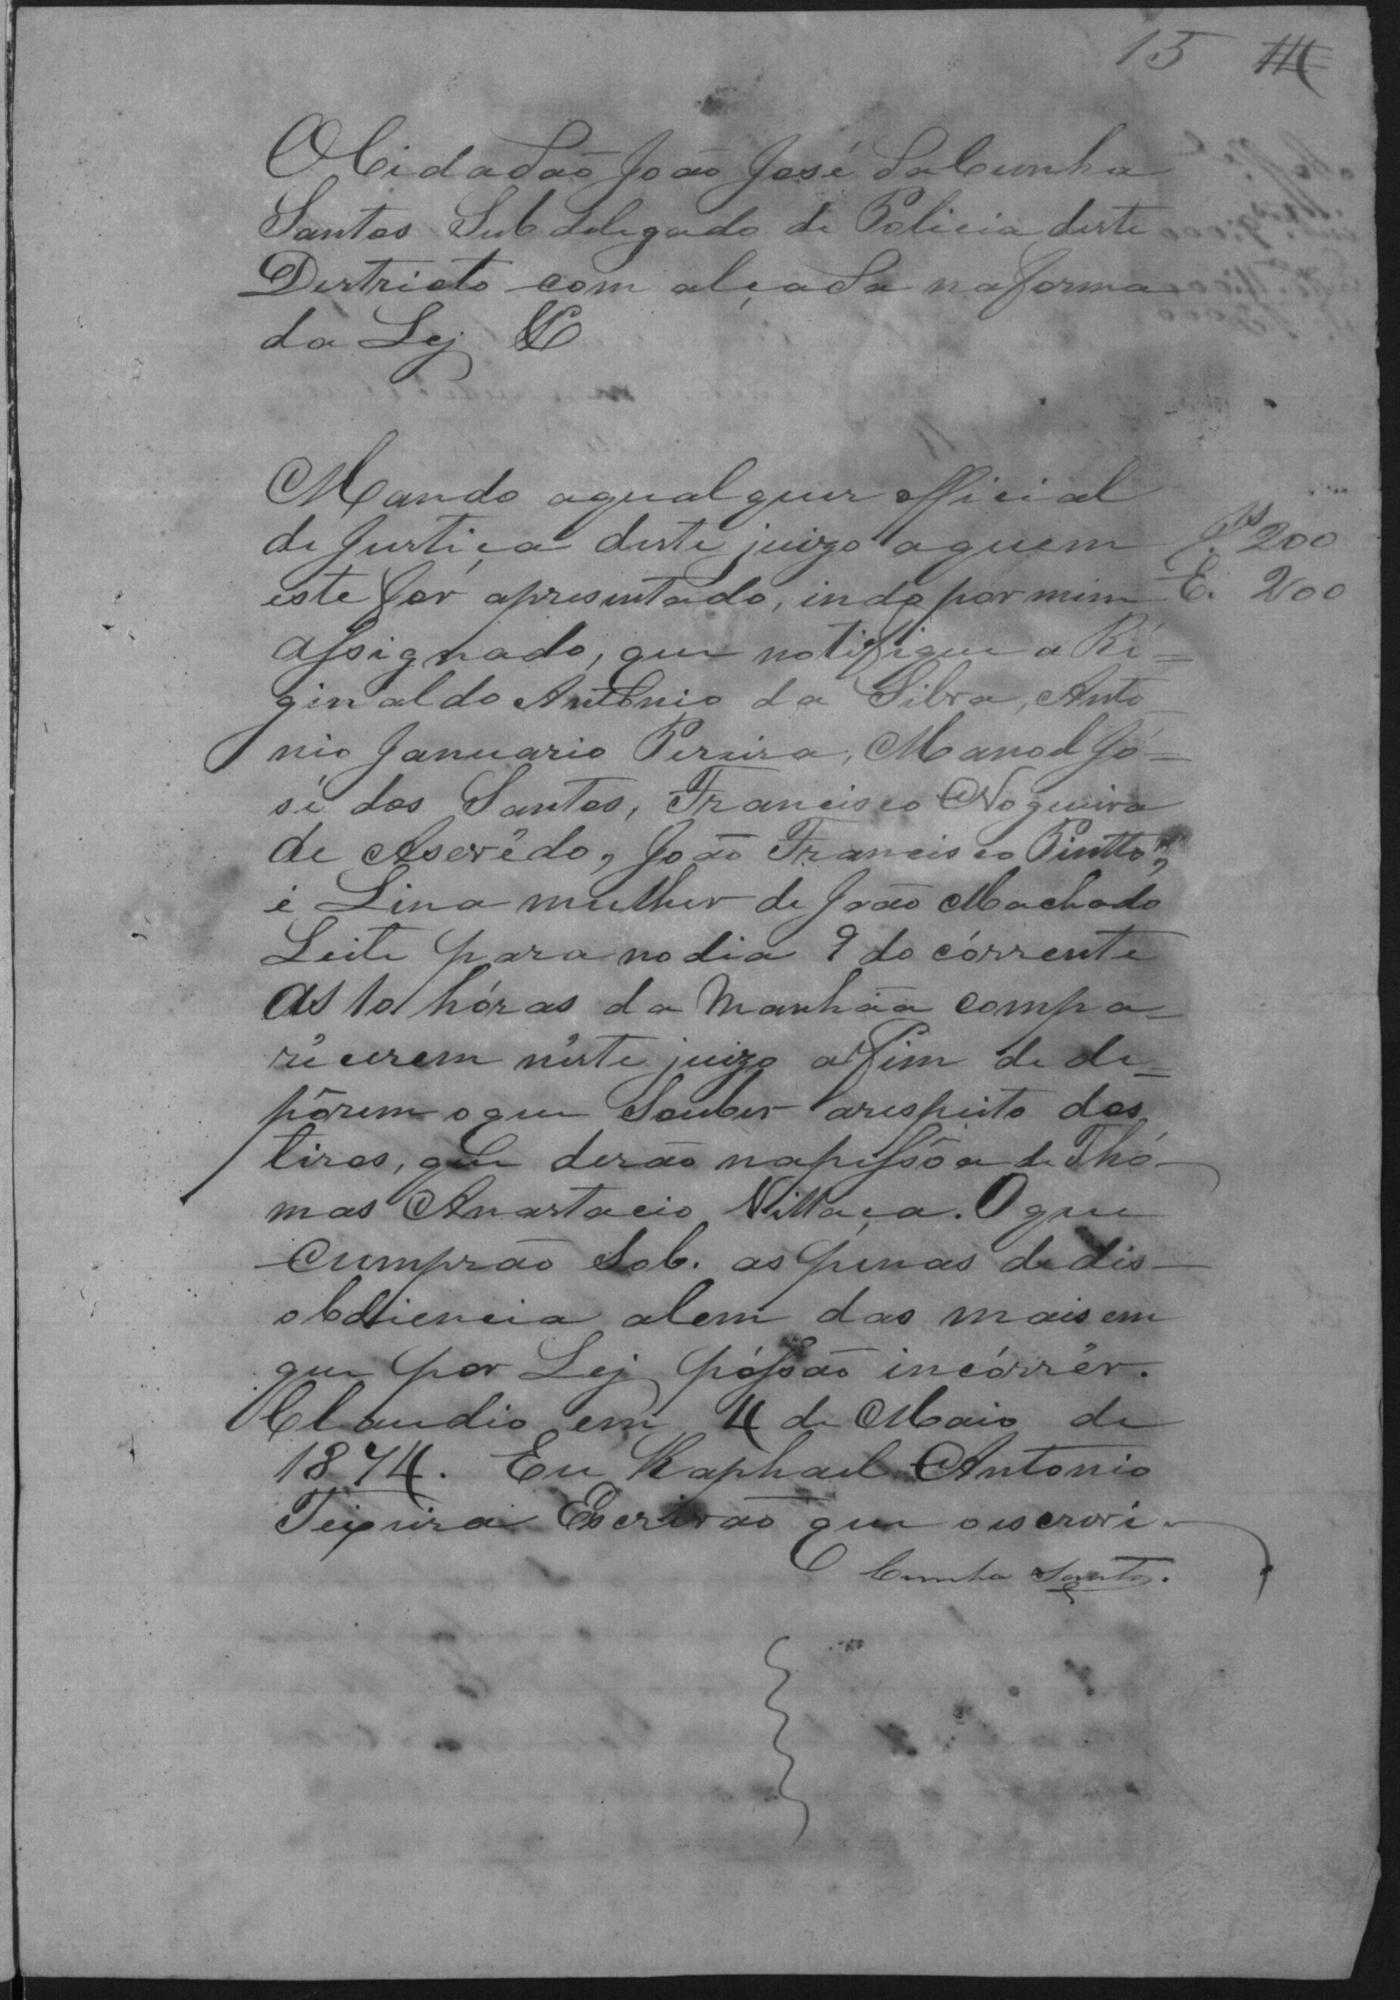 15
O Cidadão João José da Cunha
Santos Sub delegado de Policia deste
Destricto com alçada na forma
da Lej &C
Mando aqualquer official
de Justiça deste juizo aquem
este fôr apresentado, indo por mim
assignado, que notifique a Ri=
ginaldo Antônio da Silva, Anto
nio Januario Pereira, Manoel Jó=
sé dos Santos, Francisco Nogueira
de Aserêdo, João Francisco Pintto,
é Lina mulher de João Machado
Leite para no dia 9 do córrente
As 10 hóras da Manhãa compa=
rêcerem nêste juizo afim de de=
pôrem o que Souber arespeito dos
tiros, que derão napessôa de Thó-
mas Anastacio Villaça. O que
Cumprão Sob. as penas de dis-
obdiencia alem das mais em
que por Lej póssão incórrêr.
Claudio em 4 de Maio de
1874. Eu Raphael Antonio
Teixeira Escrivão que o escrevi.
Cunha Santos.
200
E. 200